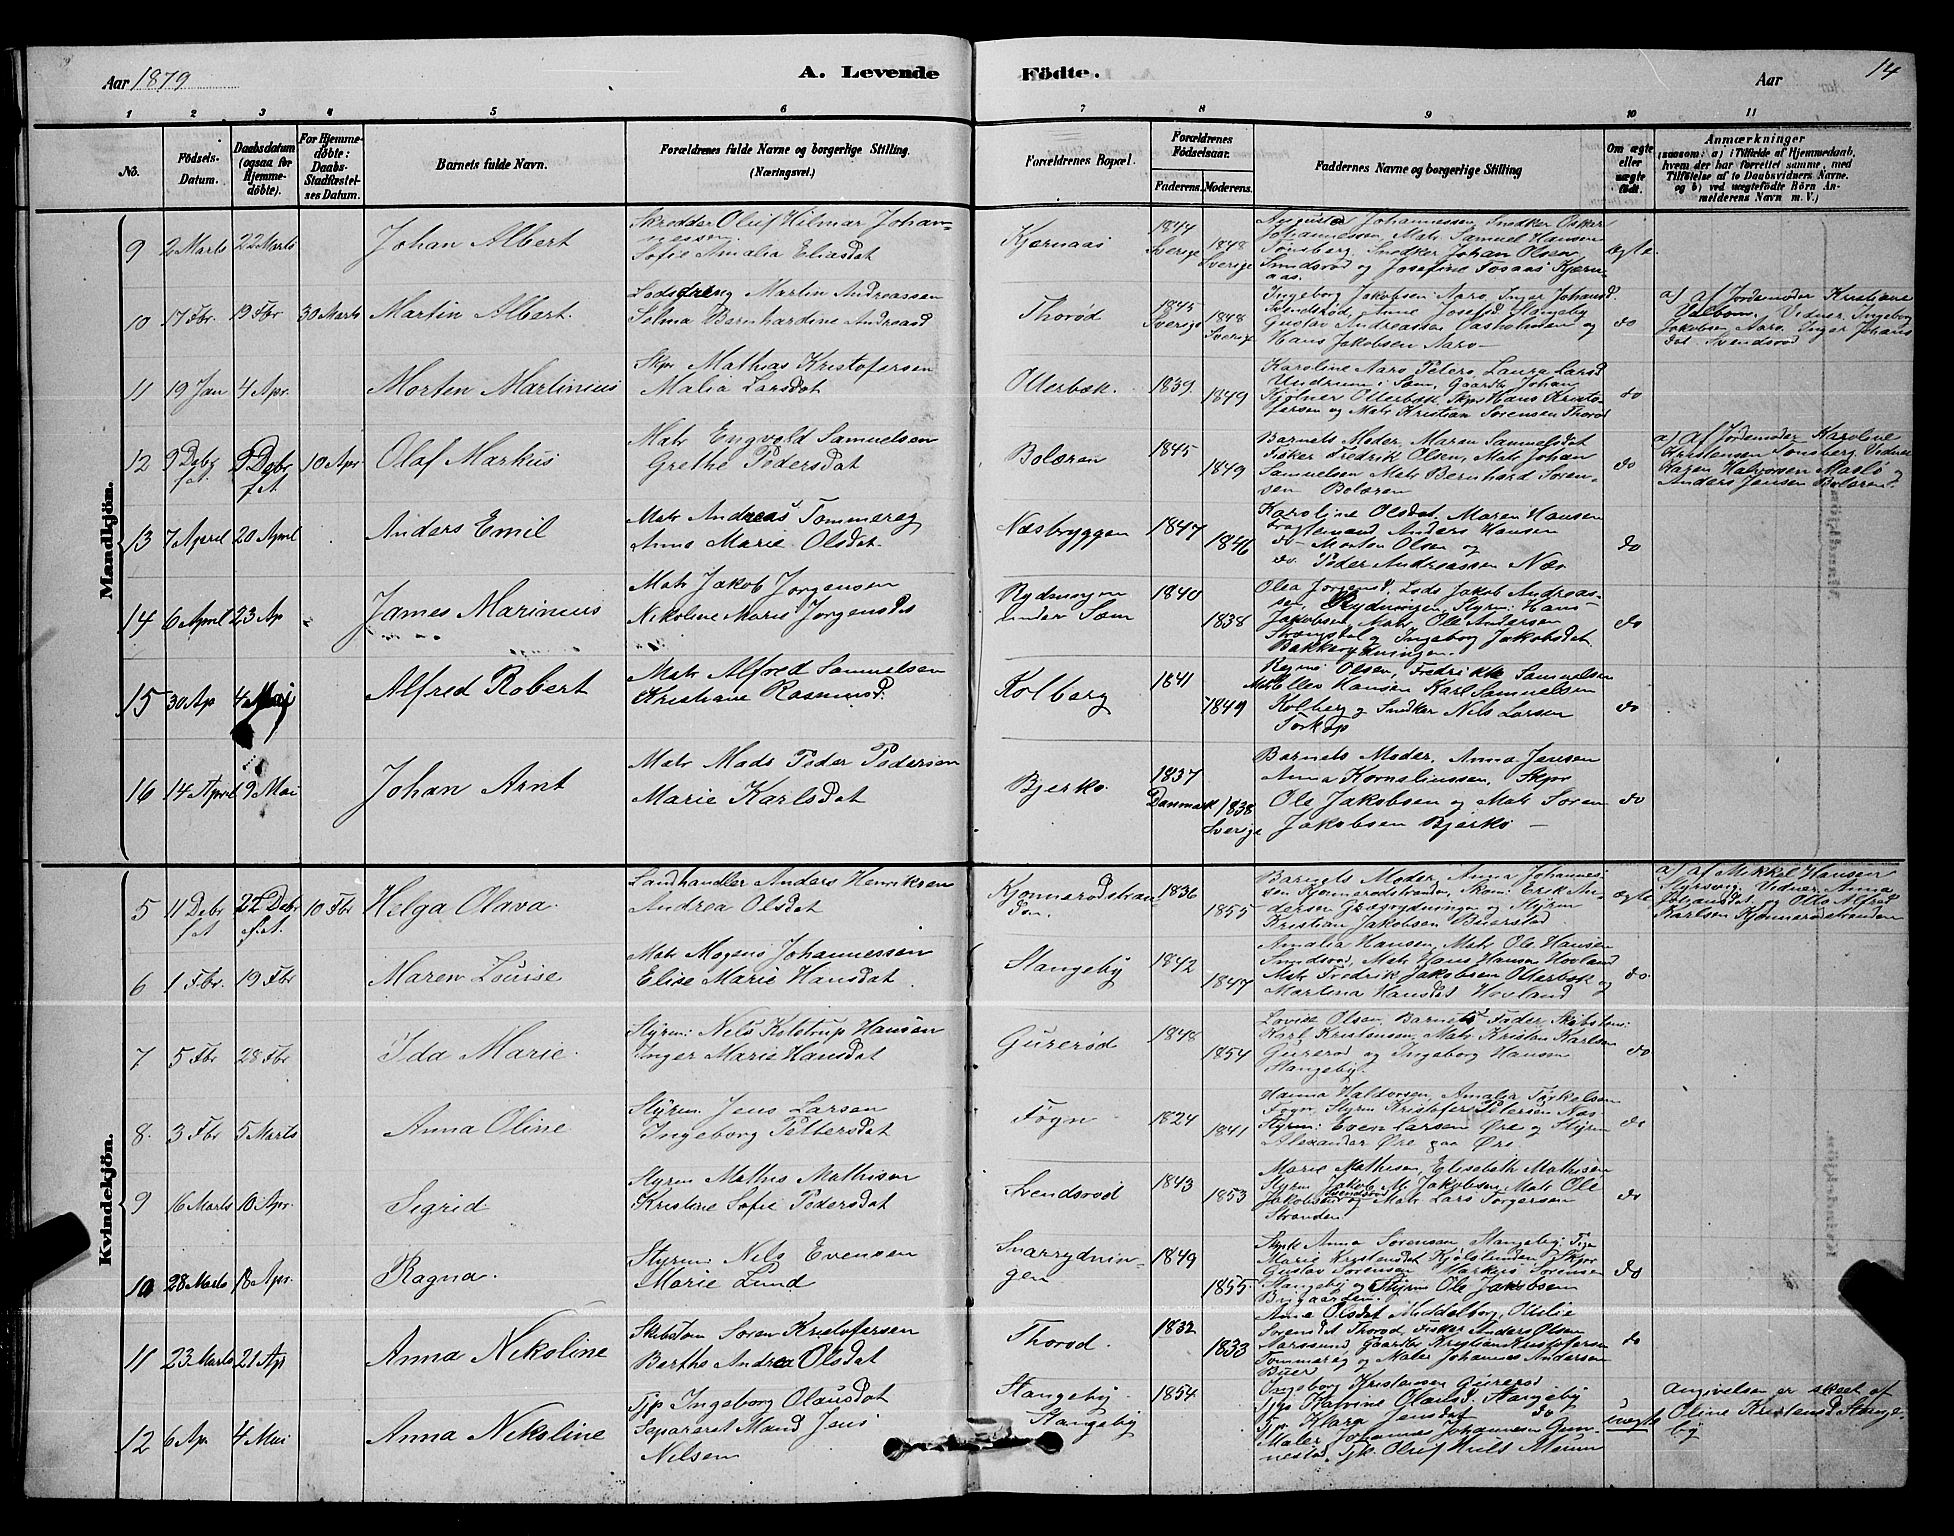 Aar 1879
A. Levende
Födte.
Aar
14
1 2 3 4 5 6 7 8 9 10 11
No.
Födsels-
Datum.
Daabsdatum
(ogsaa for
Hjemme-
döbte).
For Hjemme-
döbte:
Daabs-
Stadfæstel-
ses Datum.
Barnets fulde Navn.
Forældrenes fulde Navne og borgerlige Stilling.
(Næringsvei.)
Forældrenes Bopæl.
Forældrenes
Födselsaar.
Faderens. Moderens.
Faddernes Navne og borgerlige Stilling
Om ægte
eller
uægte
födt.
Anmærkninger
(saasom: a) i Tilfælde af Hjemmedaab,
hvem der har forrettet samme, med
Tilföielse af to Daabsvidners Navne,
og b) ved uægtefödte Börn An-
melderens Navn m. V.)
Mandkjön.
9 2 Marts 22 Marts
Johan Albert
Skredder Oluf Hilmar Johan-
nessen
Sofie Amalia Eliasdat
Kjærnaas
1844 Sverige
1848 Sverige
August Johannessen, Snedker Oskar
Johannessen, Matr Samuel Hansen
Tønsberg, Snedker Johan Olsen
Smidsrød og Josefine Fosaas Kjærn-
aas.
ægte
10 17 Fbr. 19 Fbr 30 Marts
Martin Albert.
Lodsdreng Martin Andreassen
Selma Bernhardine Andreasd
Thorød
1845 Sverige
1848 Sverige
Ingeborg Jakobsen Aarø, Inger Johansd.
Svendsrød, Anne Josefsd Stangeby
Gustav Andreassen Vasholmen og
Hans Jakobsen Aarø
do
a) af Jordemoder Kristiane
Vidner Ingeborg
Jakobsen Aarø, Inger Johans
dat Svendsrød
11 19 Jan 4 Apr.
Morten Martinius
Skpr Mathias Kristofersen
Malia Larsdat
Otterbæk.
1839
1849
Karoline Aarø, Peters, Laura Larsd
Undrum i Sem, Gaardb Johan
Kjølner Otterbæk, Skpr Hans Kristo-
fersen og Matr Kristian Sørensen Thorød
do
12 9 Debr f.A. 9 Debr f.A. 10 Apr
Olaf Markus
Matr Engvold Samuelsen
Grethe Pedersdat
Bolæren
1845
1849
Barnets Moder, Maren Samuelsdat
Fisker Fredrik Olsen, Matr Johan
Samuelsen Matr Bernhard Søren-
sen Bolæren
do
a) af Jordemoder Karoline
Kristensen Tønsberg, Vidner
Karen Halvorsen Masløe
Anders Jensen Bolæren.
13 7 April 20 April
Anders Emil
Matr Andreas Tommereg
Anne Marie Olsdat.
Næsbryggen
1847
1846
Karoline Olsdat, Maren Hansen
Anders Hansen
do Morten Olsen og
do Peder Andreassen Næs
do
14 6 April 23 Ap
James Marinius
Matr Jakob Jørgensen
Nikoline Marie Jørgensdat
Rydningen
under Sem
1840
1838
Olea Jørgensd, Lods Jakob Andreas-
sen, Rydningen, Styrm: Hans
Jakobsen, Matr Ole Andersen
Strengsdal og Ingeborg Jakobsdat
Bakkerydningen.
do
15 30 Ap 4 Mai
Alfred Robert
Matr Alfred Samuelsen
Kristiane Rasmusd.
Kolberg
1841
1849
Regine Olsen, Fredrikke Samuelsen
Matr Elles Hansen Karl Samuelsen
Kolberg og Snedker Nils Larsen
Torkop
do
16 14 April 9 Mai
Johan Arnt
Matr Mads Peder Pedersen
Marie Karlsdat
Bjerkø.
1837 Danmark
1838 Sverige
Barnets Moder, Anna Jensen
Anna Korneliussen, Skpr
Ole Jakobsen og Matr Søren
Jakobsen Bjerkø
do
Kvindekjön.
5 11 Debr f.A. 22 Debr f.A. 10 Fbr
Helga Olava.
Landhandler Anders Henriksen
Andrea Olsdat
Kjønnerødstran
den.
1836
1855
Barnets Moder, Anna Johannes-
sen Kjønnerødstranden, Skom: Erik An-
dersen Græsrydningen og Styrm
Kristian Jakobsen Buerstad
ægte
a) af Mikkel Hansen
Styrsvig, Vidner Anna
Johansdat og Otto Alfred
Karlsen Kjønnerødstranden
6 1 Fbr. 19 Fbr
Maren Louise
Matr Mogens Johannessen
Elise Marie Hansdat
Stangeby
1842
1847
Amalia Hansen, Matr Ole Hansen
Smidsrød, Matr Hans Hansen Hovland
Matr Fredrik Jakobsen Otterbæk og
Martina Hansdat Hovland
do
7 5 Fbr 28 Fbr
Ida Marie.
Styrm: Nils Kolstrup Hansen
Inger Marie Hansdat
Gurerød
1848
1854
Lovise Olsen, Barnets Fader, Skibstøm:
Karl Kristensen, Matr Kristen Karlsen
Gurerød og Ingeborg Hansen
Stangeby.
do
8. 3 Fbr 5 Marts
Anna Oline
Styrm. Jens Larsen
Ingeborg Pettersdat
Føgn
1824
1841
Hanna Haldorsen, Amalia Torkelsen
Føgn, Styrm Kristofer Petersen Næs
Styrm: Even Larsen Øre og Styrm
Alexander Øre paa Øre.
do
9 16 Marts 10 Apr.
Sigrid
Styrm Mathis Mathisen
Kristine Sofie Pedersdat
Svendsrød
1843
1853
Marie Mathisen, Elisabeth Mathisen
Styrm Jakob M. Jakobsen, Matr Ole
Jakobsen Svendsrød og Matr Lars Torgersen
Stranden
do
10 28 Marts 18 Apr.
Ragna.
Styrm: Nils Evensen
Marie Lund
Snarrydnin-
gen
1849
1855.
Anna Sørensen Stangeby, Tjp
Marie Kristensdat Kjølslunden, Skpr
Gustav Sørensen, Markus Sørensen
Stangeby og Styrm Ole Jakobsen
Brugaarden.
do
11 23 Marts 21 Ap
Anna Nikoline
Skibstøm Søren Kristofersen
Berthe Andrea Olsdat
Thorød.
1832
1833
Anne Olsdat Middelborg, Otilie
Sørensdat Thorød, Fisker Anders Olsen
Narssund, Gaardb Kristian Kristofersen
Tommereg og Maler Johannes Andersen
Buer
do
12 6 Ap 4 Mai
Anna Nikoline
Tjp Ingeborg Olausdat
Separeret Mand Jens
Nilsen
Stangeby.
Stangeby
1854
Ingeborg Kristensen Gurerød
Tjp Katrine Olausd. Stangeby
Tjp Klara Jensdat do
Maler Johannes Johannesen Gun-
nestad, Tjk. Oluf Huls Merum
uægte
Angivelsen er skeet af
Oline Kristensd Stange-
by